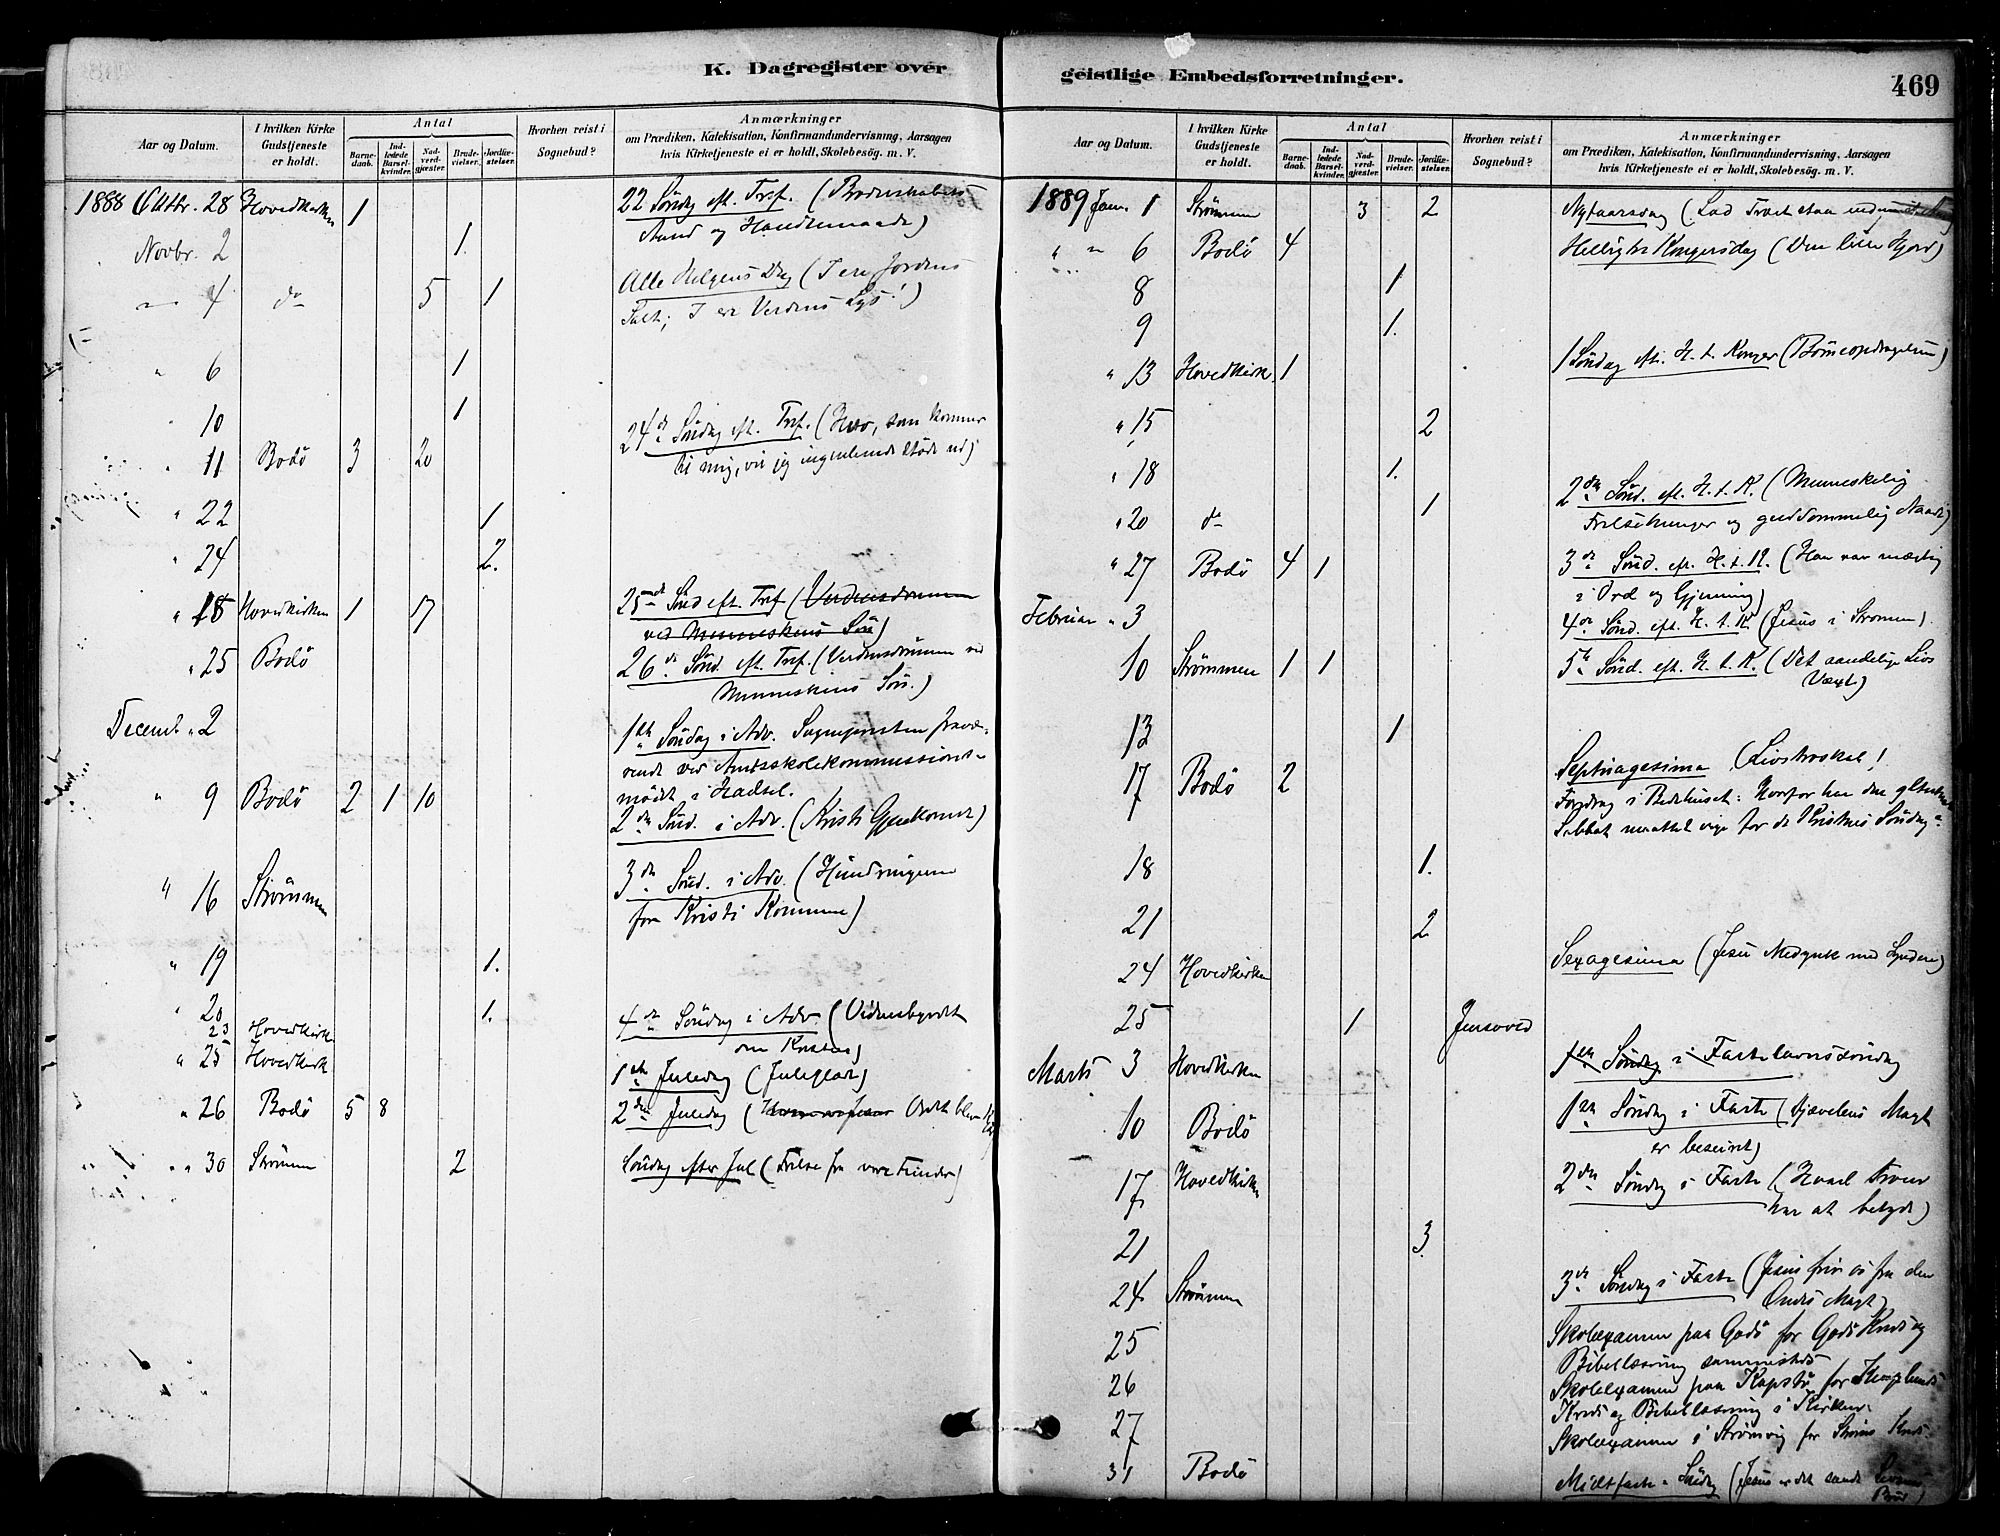 K. Dagregister over
Aar og Datum.
I hvilken Kirke Gudstjeneste er holdt.
Antal
Barnedaab.
Indledede Barselkvinder.
Nadverdgjæster.
Brudevielser.
Jordfæstelser.
Hvorhen reist i Sognebud?
Anmærkninger
om Prædiken, Katekisation, Konfirmandundervisning, Aarsagen
hvis Kirketjeneste ei er holdt, Skolebesøg. m. V.
1888 Oktbr. 28 Hovedkirken 1 22 Søndag eft. Tref. (Broderskabets
Aand og Handlemaade)
Novbr. 2 1.
" 4 do 5 1 Alle Helgens Dag (I ere Jordens
Salt; I ere Verdens Lys!)
" 6 1
" 10 1
" 11 Bodø 3 20 24de Søndag eft. Tref. (Hver, som kommer
til mig, vil jeg ingenlunde støde ud)
" 22 1
" 24 2.
" 18 Hovedkirken 1 17 25de Sønd eft. Tref (Verdensdommen
ved Menneskens Søn)
" 25 Bodø 26de Sønd. eft. Tref. (Verdensdommen ved
Menneskens Søn.)
Decemb. " 2 1ste Søndag i Adv. Sognepresten fravæ-
rende ved Amtsskolekommissions-
mødet i Hadsel.
" 9 Bodø 2 1 10 2den Sønd. i Adv. (Kristi Gjenkomst)
" 16 Strømmen 3de Sønd. i Adv. (Hindringerne
for Kristi Komme)
" 19 1.
" 20 1.
23 Hovedkirk 4de Søndag i Adv. (Vidnesbyrdet
om Kristus)
" 25 Hovedkirk 1ste Juledag (Juleglæde)
" 26 Bodø 5 8 2den Juledag (Ordet blev Kjød)
" " 30 Strømmen 2 Søndag efter Jul (Frelse fra vore Fiender)
geistlige Embedsforretninger.
469
Aar og Datum.
I hvilken Kirke Gudstjeneste er holdt.
Antal
Barnedaab.
Indledede Barselkvinder.
Nadverdgjæster.
Brudevielser.
Jordfæstelser.
Hvorhen reist i Sognebud?
Anmærkninger
om Prædiken, Katekisation, Konfirmandundervisning, Aarsagen
hvis Kirketjeneste ei er holdt, Skolebesøg. m. V.
1889 Jan. 1 Strømmen 3 2 Nytaarsdag (Lad Træet staa endnu
" " 6 Bodø 4 Hellig tre Kongersdag (Den lille Hjord)
8 1
9 1.
" 13 Hovedkirk. 1 1 Søndag eft. H. t. Konger (Børneopdragelsen)
" 15 2
" 18 1.
" 20 do 1 2den Sønd. eft. H. t. K. (Menneskelig
og guddommelig Naade)
" 27 Bodø 4 1 3de Sønd. eft. H. t. K. (Han var mægtig
i Ord og Gjerning)
Februar " 3 4de Sønd. eft. H. t. K (Jesus i Stormen).
10 Strømmen 1 1 5te Sønd. eft. H. t. K. (Det aandelige Livs
Væxt)
13 1
17 Bodø 2 Septuagesima (Livstroskab!
Foredrag i Bedehuset: Hvorfor har den
Sabbat maattet vige for de Kristnes Søndag
18 1.
21 2
24 Hovedkirken Sexagesima (Jesu Medynk med Synderne)
25 1 Jensvold
Marts 3 Hovedkirken 1ste Søndag i Fastelavnssøndag
10 Bodø 1ste Søndag i Faste (Djævelens Magt
er beseiret)
17 Hovedkirken 2den Søndag i Faste (Hvad Troen
har at betyde)
21 3
24 Strømmen 3de Søndag i Faste (Jesus frir os fra den
Ondes Magt)
25 Skolexamen paa Godø for Godø Kreds og
Bibellæsning sammesteds
26 Skolexamen paa Kapstø for
Kreds og Bibellæsning i Kirken.
27 Skolexamen i Strømvig for Strøms Kreds.
31 Bodø Midtfaste Søndag (Jesus er det sande Livsens
Brød)